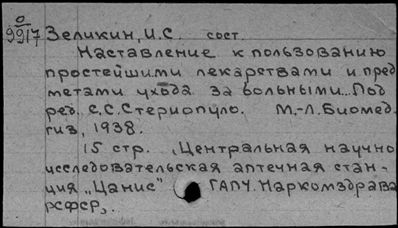 0
9917 Зеликин, И.С. сост.
Наставление к пользованию
простейшими лекарствами и пред-
метами ухода за больными. Под
ред. С.С. Стериопуло. М.-Л. Биомед-
гиз, 1938.
15 стр. (Центральная научно
исследовательская аптечная стан-
ция „Цанис" ГАПУ. Наркомздрава
РСФСР).